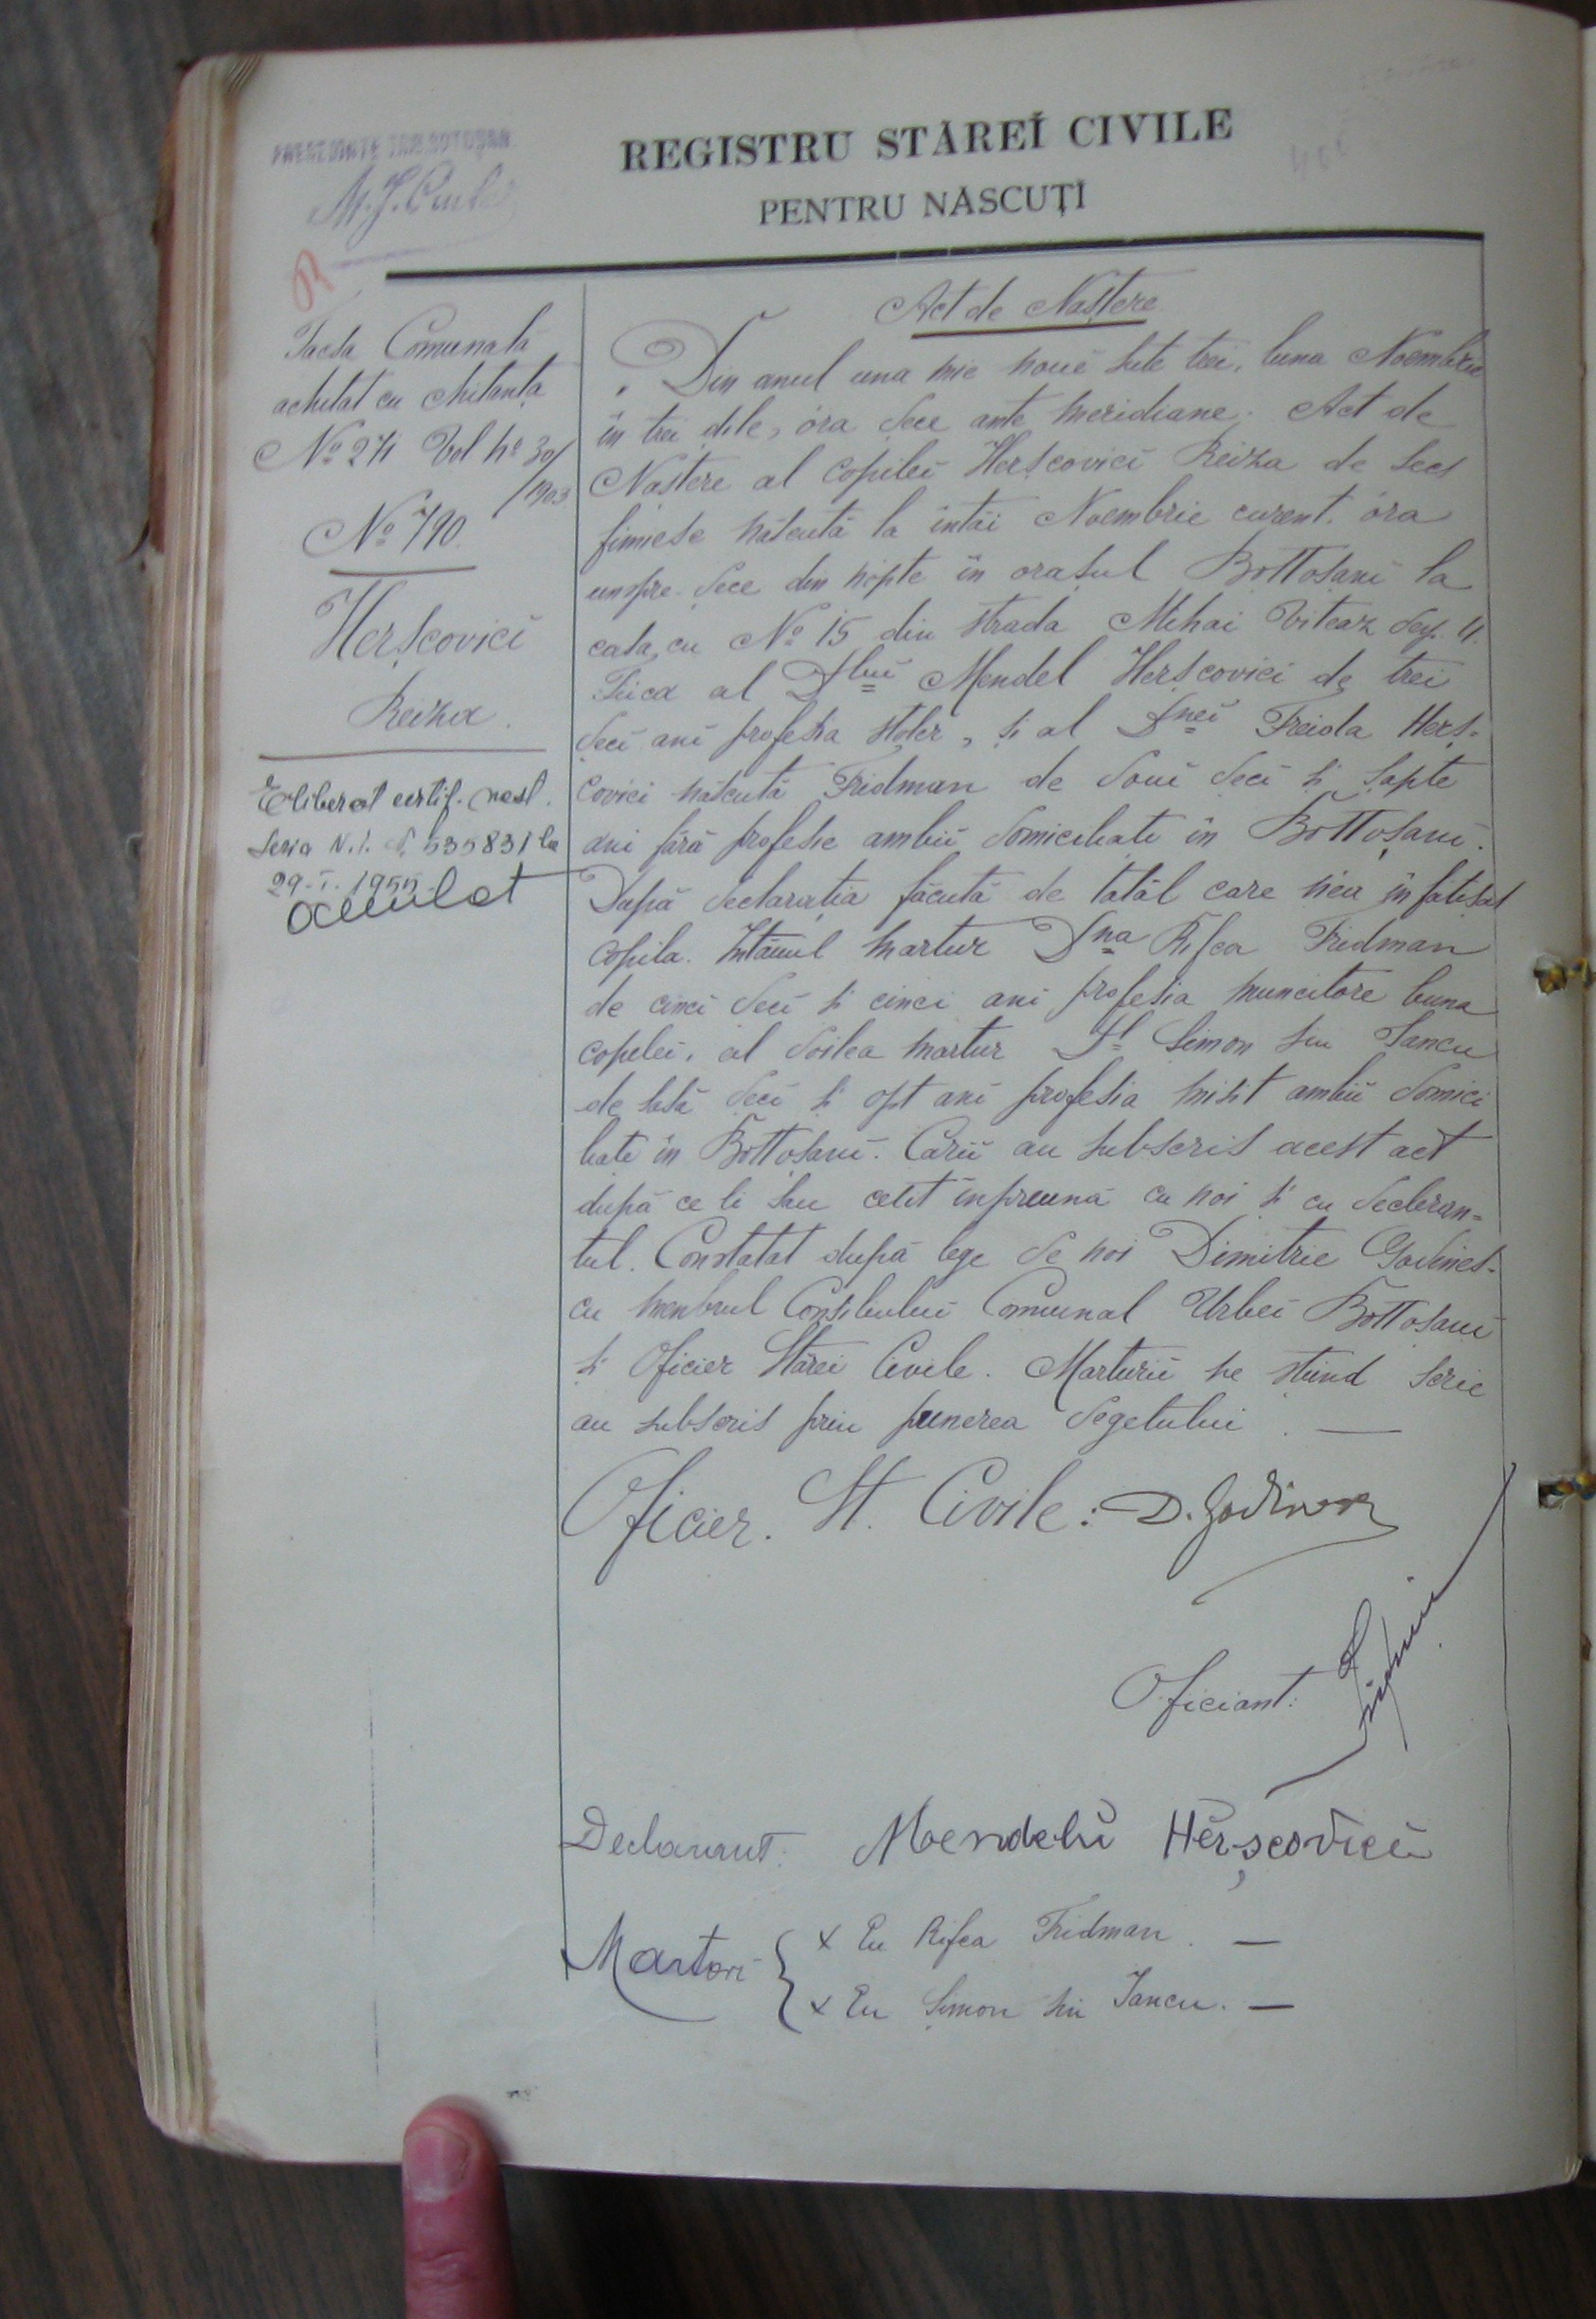 PRESEDINTE TRIB. BOTOSANI
REGISTRU STĂREĬ CIVILE
PENTRU NĂSCUȚĬ
Tacsa Comunala
achitat cu chitanța
No 271 Vol No 30/
/1903
No 790.
Herșcovici
Reiza.
Eliberat certif. nast.
Seria N.1. N. 535831 la
29-I-1955
Act de Naștere
Din anul una mie noue sute trei, luna Noembrie
în trei dile, óra dece ante meridiane. Act de
Nastere al copilei Herșcovici Reiza de secs
fimiesc născută la întâi Noembrie curent. óra
unspre-dece din nópte în orașul Bottoșani la
casa cu No 15 din strada Mihai Viteaz desp. II.
Fiica al Dlui Mendel Herșcovici de trei
deci ani profesia stoler, și al Dnei Freida Herș-
covici născută Fridman de doue deci și șapte
ani fără profesie ambii domiciliati în Bottoșani.
După declarația făcută de tatăl care nea înfatișat
copila. Intăiul martur Dna Rifca Fridman
de cinci deci și cinci ani profesia muncitóre buna
copilei, al doilea martur Dl Simon sin Iancu
de șasă deci și opt ani profesia misit ambii domici
liati în Bottoșani. Carii au subscris acest act
după ce li sau cetit inpreună cu noi și cu declaran-
tul. Constatat după lege de noi Dimitrie Godines-
cu membrul Consiliului Comunal Urbei Bottoșani
și Oficier Stărei Civile. Marturii ne știind scrie
au subscris prin punerea degetului. —
Oficier. St. Civile: D. Godinescu
Oficiant:
Declarant: Mendelŭ Herșcovici
Martori { x Eu Rifca Fridman. —
x Eu Simon sin Iancu. —